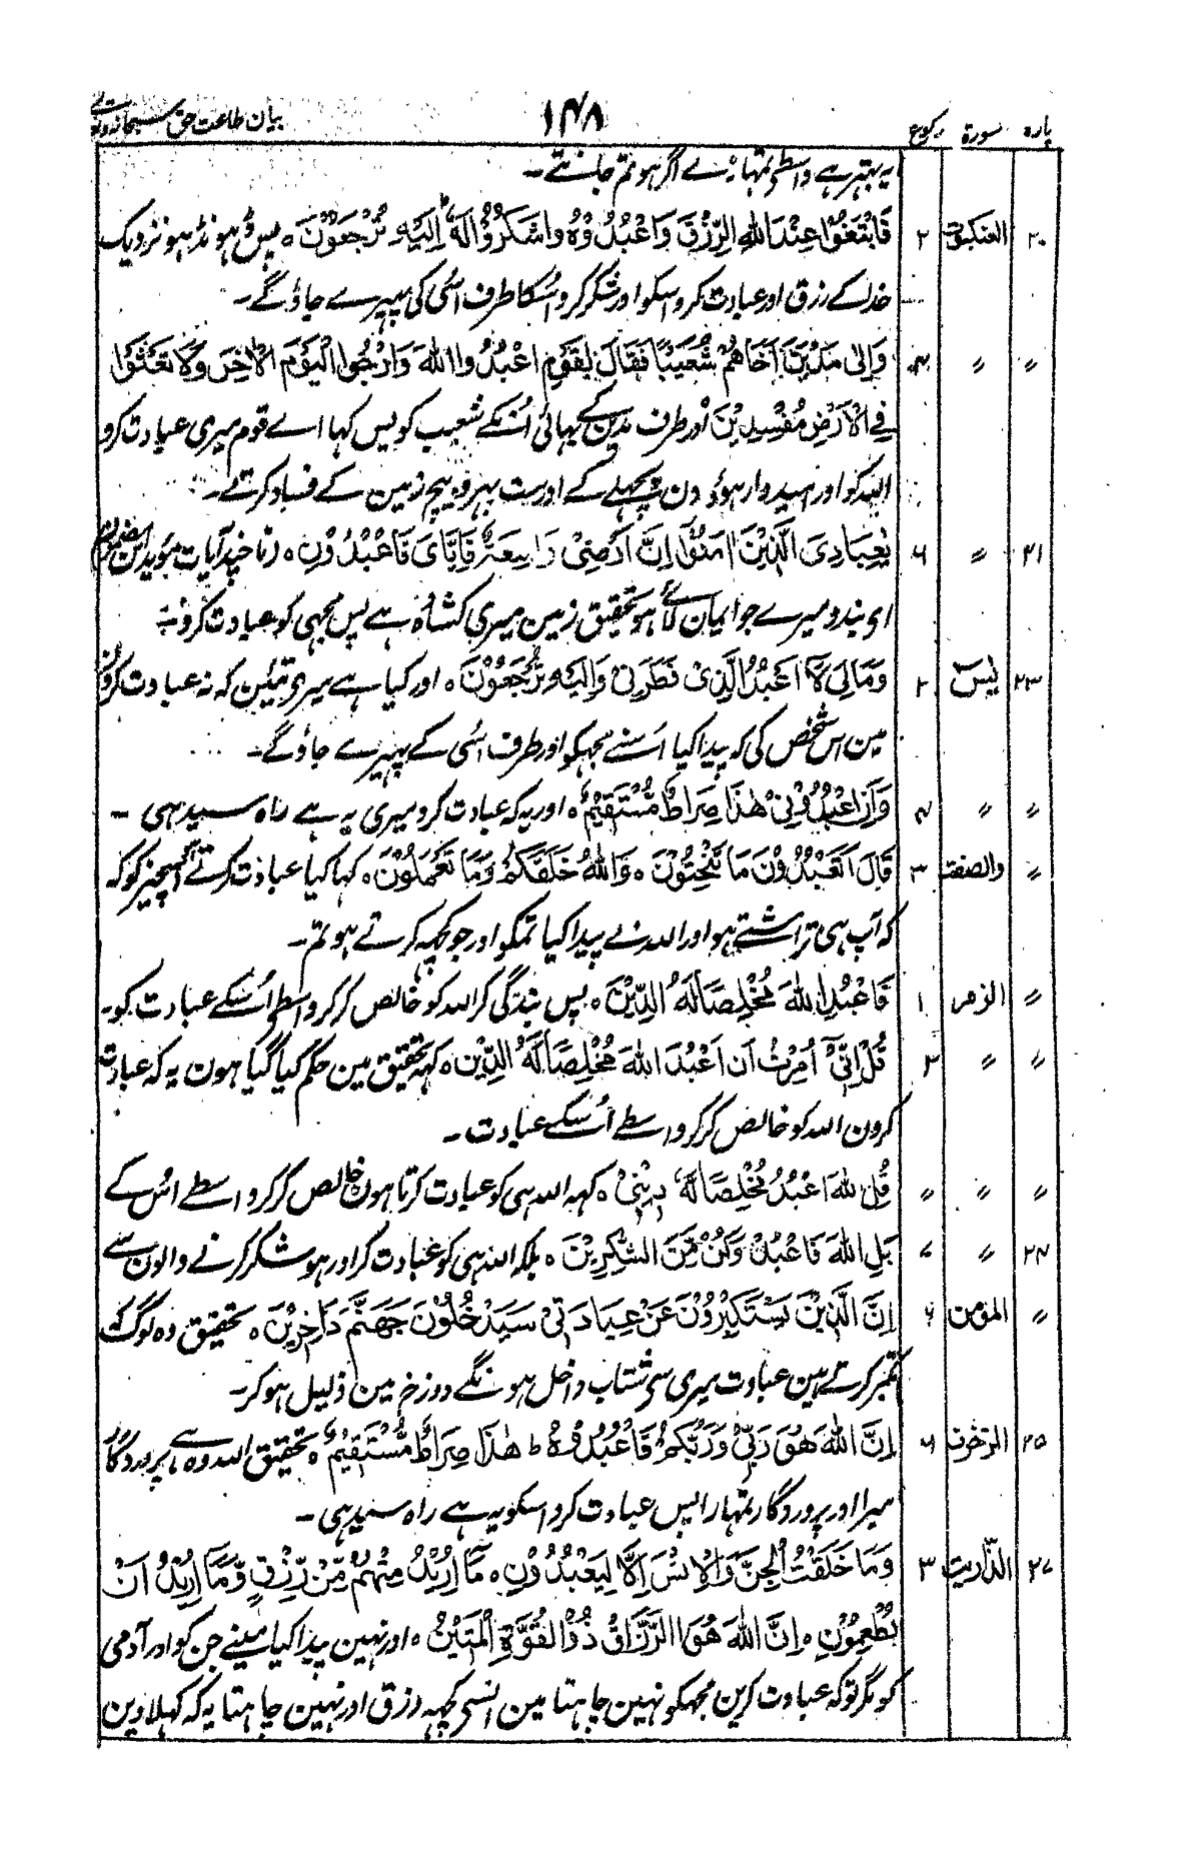 پارہ سورۃ رکوع ۱۴۸ بیان طاعت حق سبحانہ وتعالے
یہ بہتر ہے واسطے تمہارے اگر ہو تم جانتے۔
۲۰ العنکبوت ۲ فَابْتَغُوْا عِنْدَ اللّٰهِ الرِّزْقَ وَاعْبُدُوْهُ وَاشْكُرُوْا لَهٗ اِلَيْهِ تُرْجَعُوْنَ ۰ پس ڈہونڈہو نزدیک
خدا کے رزق اور عبادت کرو اسکو اور شکر کرو اسکا طرف اسی کی پہیرے جاؤ گے۔
〃 〃 ۴ وَاِلٰى مَدْيَنَ اَخَاهُمْ شُعَيْبًا فَقَالَ يٰقَوْمِ اعْبُدُوا اللّٰهَ وَارْجُوا الْيَوْمَ الْاٰخِرَ وَلَا تَعْثَوْا
فِى الْاَرْضِ مُفْسِدِيْنَ اور طرف مدین کے بہائی اُنکے شعیب کو پس کہا اے قوم میری عبادت کرو
اللہ کو اور امیدوار ہوؤ دن پچہلے کے اور مت پہرو بیچ زمین کے فساد کرتے۔
۲۱ 〃 ۶ يٰعِبَادِىَ الَّذِيْنَ اٰمَنُوْٓا اِنَّ اَرْضِىْ وَاسِعَةٌ فَاِيَّاىَ فَاعْبُدُوْنِ ۰ (تا چند آیات مؤید این مضمون)
ای بندو میرے جو ایمان لائے ہو تحقیق زمین میری کشادہ ہے پس مجہی کو عبادت کرو۔
۲۳ یٰسٓ ۲ وَمَالِىَ لَآ اَعْبُدُ الَّذِىْ فَطَرَنِىْ وَاِلَيْهِ تُرْجَعُوْنَ ۰ اور کیا ہے میری تئین کہ نہ عبادت کرون
مین اس شخص کی کہ پیدا کیا اُسنے مجہکو اور طرف اُسی کے پہیرے جاؤگے۔
〃 〃 ۴ وَاَنِ اعْبُدُوْنِىْ هٰذَا صِرَاطٌ مُّسْتَقِيْمٌ ۰ اور یہ کہ عبادت کرو میری یہ ہے راہ سیدہی ۔
〃 والصفت ۳ قَالَ اَتَعْبُدُوْنَ مَا تَنْحِتُوْنَ ۰ وَاللّٰهُ خَلَقَكُمْ وَمَا تَعْمَلُوْنَ ۰ کہا کیا عبادت کرتے ہو اُسچیز کو کہ
کہ آپ ہی تراشتے ہو اور اللہ نے پیدا کیا تمکو اور جو کچہہ کرتے ہو تم۔
〃 الزمر ۱ فَاعْبُدِ اللّٰهَ مُخْلِصًا لَّهُ الدِّيْنَ ۰ پس بندگی کر اللہ کو خالص کرکر واسطے اُسکے عبادت کو۔
〃 〃 ۲ قُلْ اِنِّىْٓ اُمِرْتُ اَنْ اَعْبُدَ اللّٰهَ مُخْلِصًا لَّهُ الدِّيْنَ ۰ کہہ تحقیق مین حکم کیا گیا ہون یہ کہ عبادت
کرون اللہ کو خالص کرکر واسطے اُسکے عبادت ۔
〃 〃 〃 قُلِ اللّٰهَ اَعْبُدُ مُخْلِصًا لَّهٗ دِيْنِىْ ۰ کہہ اللہ ہی کو عبادت کرتا ہون خالص کرکر واسطے اُس کے
۲۴ 〃 ۷ بَلِ اللّٰهَ فَاعْبُدْ وَكُنْ مِّنَ الشّٰكِرِيْنَ ۰ بلکہ اللہ ہی کو عبادت کر اور ہو شکر کرنے والون سے
〃 المؤمن ۶ اِنَّ الَّذِيْنَ يَسْتَكْبِرُوْنَ عَنْ عِبَادَتِىْ سَيَدْخُلُوْنَ جَهَنَّمَ دَاخِرِيْنَ ۰ تحقیق وہ لوگ کہ
تکبر کرتے ہین عبادت میری سی شتاب داخل ہونگے دوزخ مین ذلیل ہوکر۔
۲۵ الزخرف ۶ اِنَّ اللّٰهَ هُوَ رَبِّىْ وَرَبُّكُمْ فَاعْبُدُوْهُ ط هٰذَا صِرَاطٌ مُّسْتَقِيْمٌ ۰ تحقیق اللہ وہ ہے پروردگار
میرا اور پروردگار تمہارا پس عبادت کرو اسکو یہ ہے راہ سیدہی ۔
۲۷ الذّٰریت ۳ وَمَا خَلَقْتُ الْجِنَّ وَالْاِنْسَ اِلَّا لِيَعْبُدُوْنِ ۰ مَآ اُرِيْدُ مِنْهُمْ مِّنْ رِّزْقٍ وَّمَآ اُرِيْدُ اَنْ
يُّطْعِمُوْنِ ۰ اِنَّ اللّٰهَ هُوَ الرَّزَّاقُ ذُوالْقُوَّةِ الْمَتِيْنُ ۰ اور نہین پیدا کیا مینے جن کو اور آدمی
کو مگر تو کہ عبادت کرین مجہکو نہین چاہتا مین انسی کچہہ رزق اور نہین چاہتا یہ کہ کہلاوین